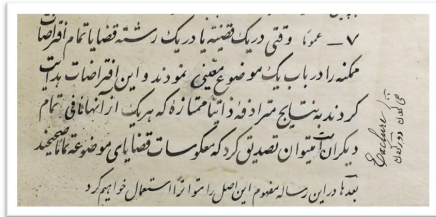 ۷ــ عموماً وقتی در یک قضیه یا در یک رشته قضایا تمام افتراضات
ممکنه را در باب یک موضوع معینی نمودند و این افتراضات بدایت
کردند به نتایج مترادفه ذاتاً ممتازه که هر یک از آنها نافی تمام
دیگران است میتوان تصدیق کرد که معکوسات قضایای موضوعه تماماً صحیحند
بعدها در این رساله مفهوم این اصل را متواتراً استعمال خواهیم کرد
Exclure
دور کردن